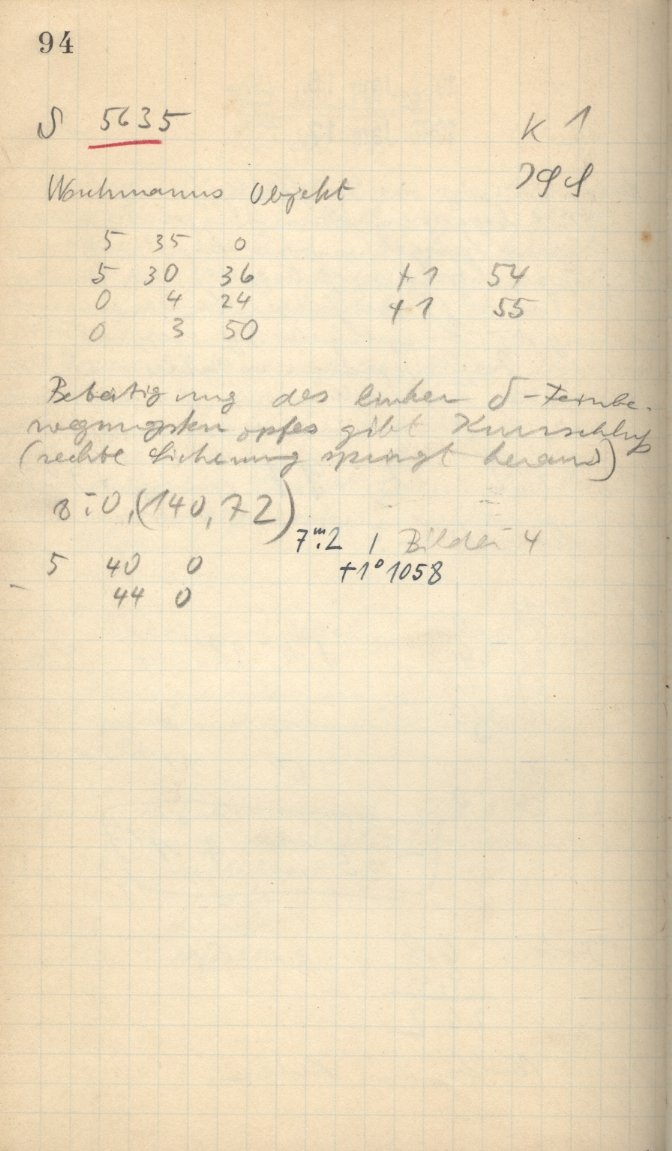 94
S 5635 K 1
Wachmanns Objekt
5 35 0
5 30 36 +1 54
0 4 24 +1 55
0 3 50
Betätigung des linken δ-Feinbe-
wegungsknopfes gibt Kurzschluß
(rechte Sicherung springt heraus)
8:0, (140,72)
7ᵐ.2 | Bilder 4
5 40 0 +1° 1058
44 0